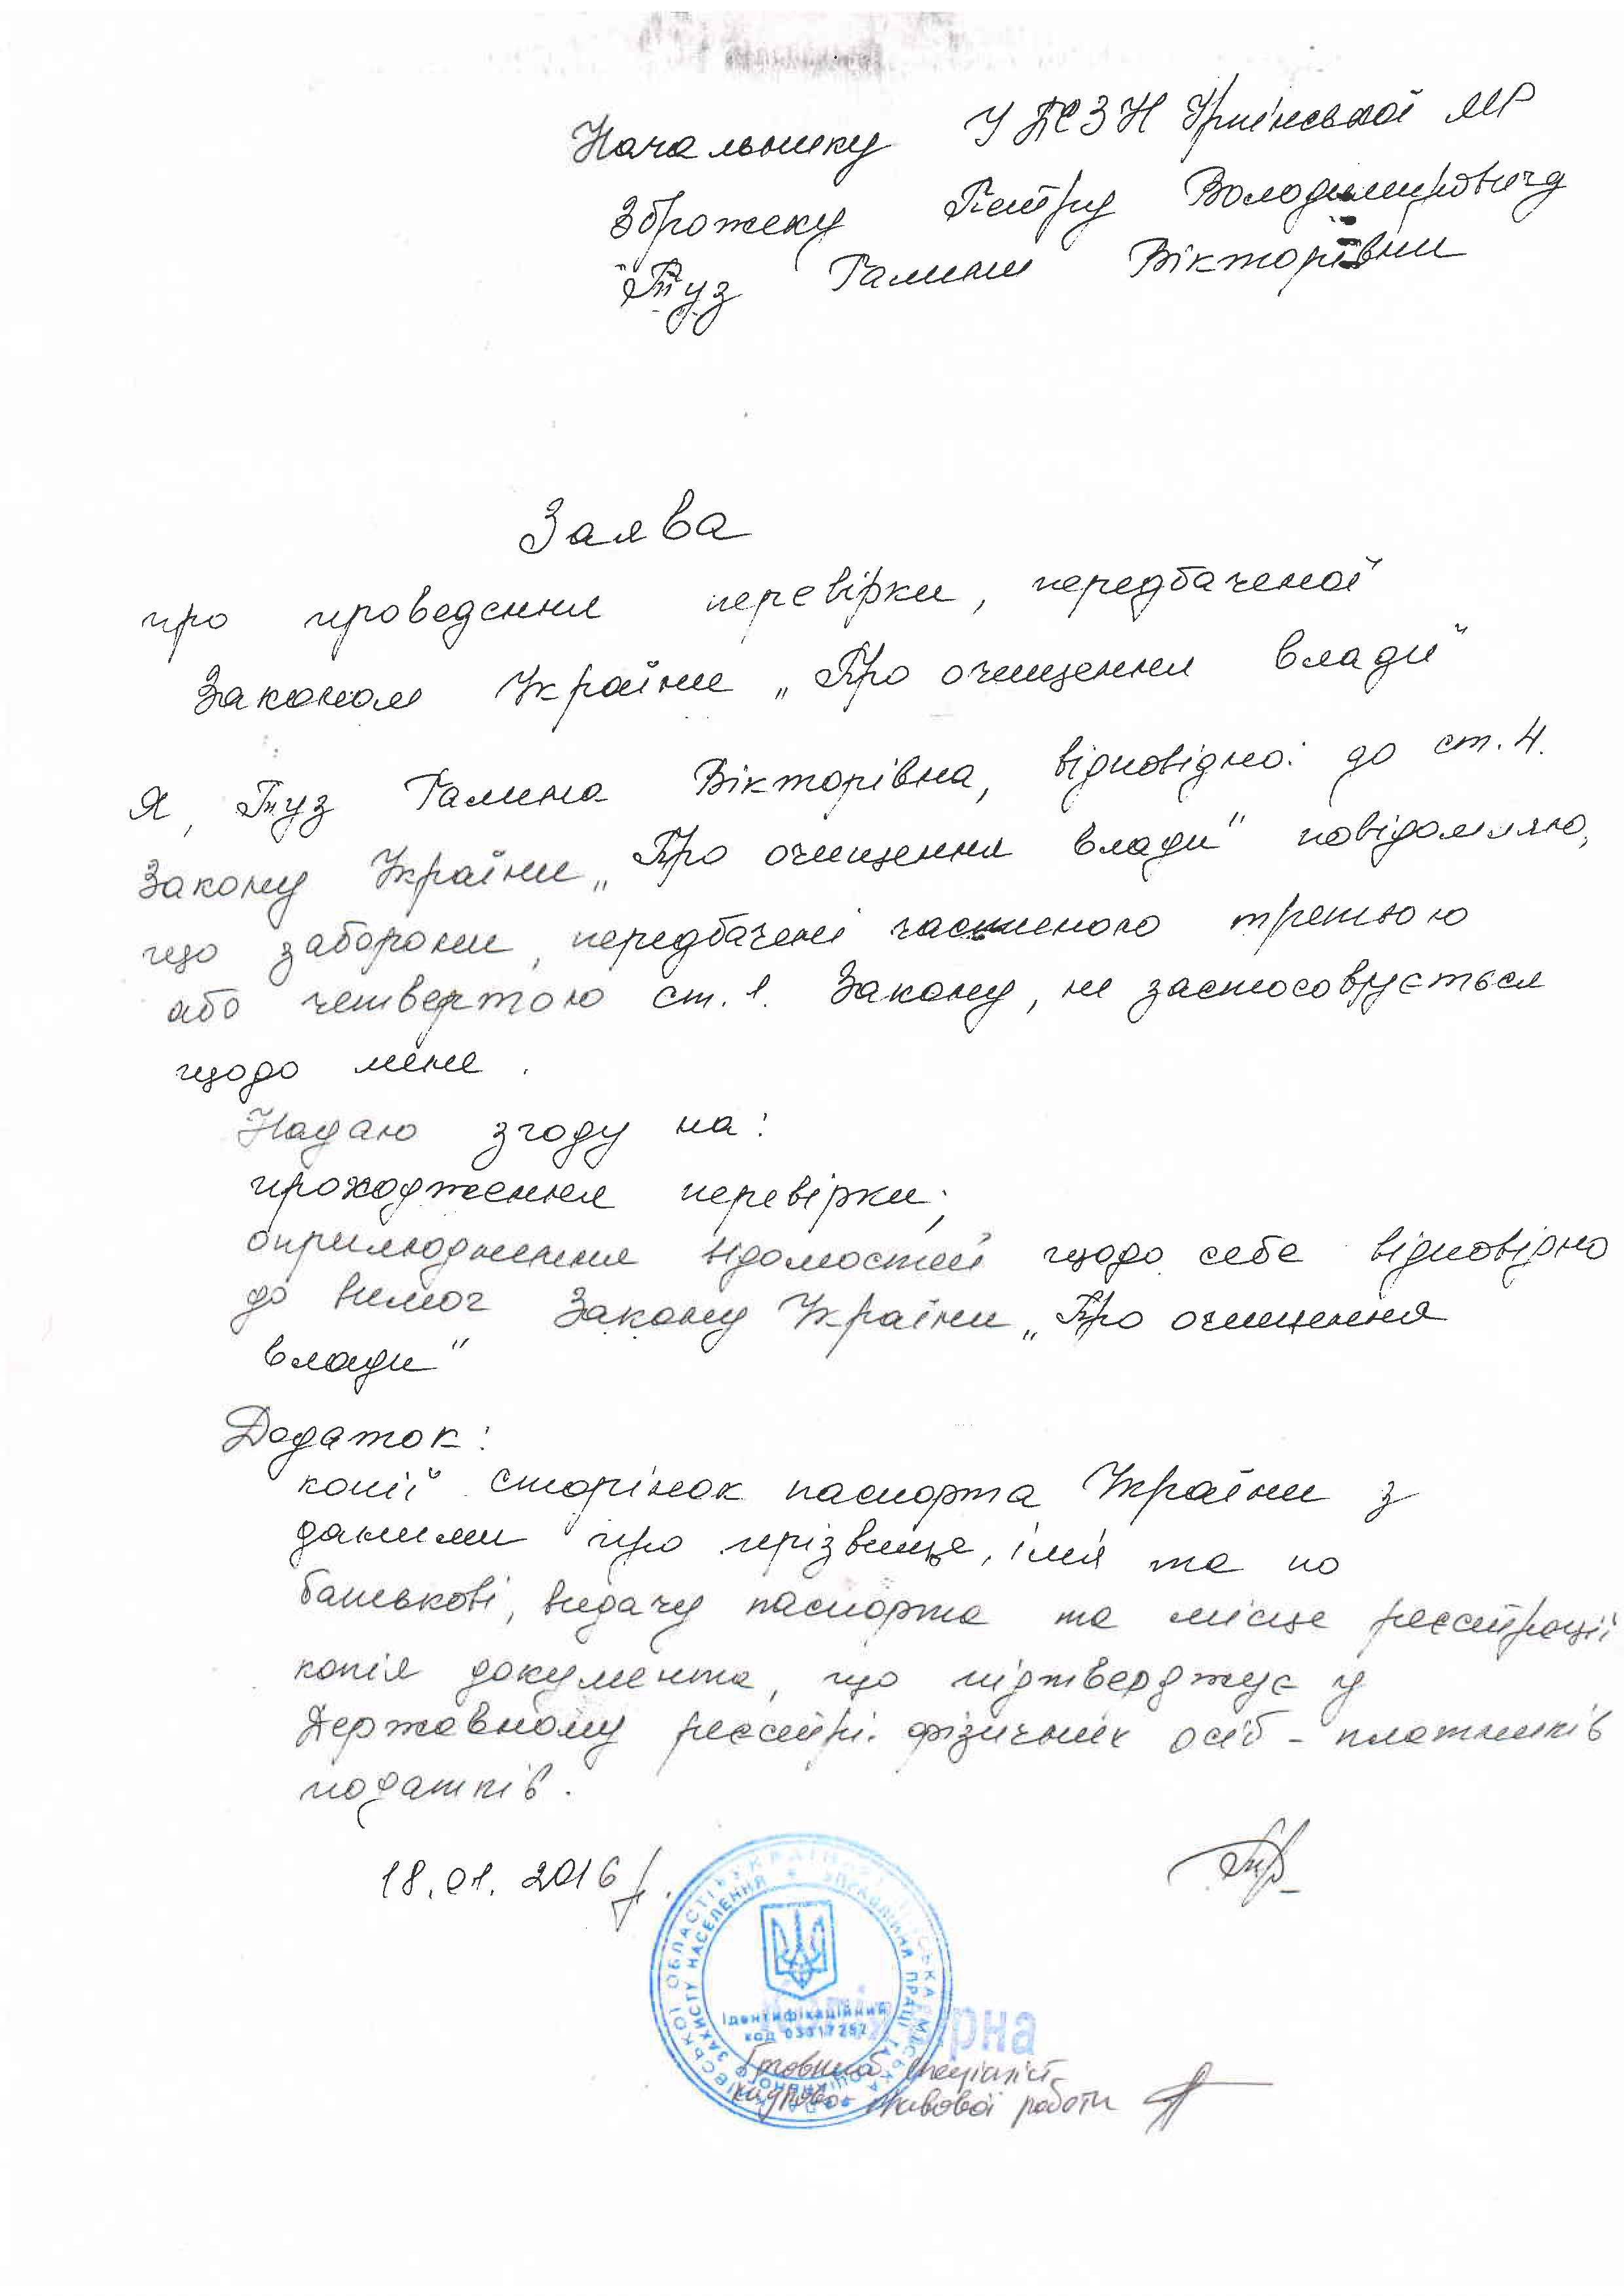 Начальнику УПСЗН Ірпінської МР
Зброжеку Петру Володимировичу
Туз Галини Вікторівни
Заява
про проведення перевірки, передбаченої
Законом України „Про очищення влади"
Я, Туз Галина Вікторівна, відповідно до ст. 4.
Закону України „Про очищення влади" повідомляю,
що заборони, передбачені частиною третьою
або четвертою ст. 1. Закону, не застосовується
щодо мене.
Надаю згоду на:
проходження перевірки;
оприлюднення відомостей щодо себе відповідно
до вимог Закону України „Про очищення
влади"
Додаток:
копії сторінок паспорта України з
даними про прізвище, ім'я та по
батькові, видачу паспорта та місце реєстрації
копія документа, що підтверджує у
Державному реєстрі фізичних осіб - платників
податків.
18.01.2016 р.
УКРАЇНА МІСЬКА РАДА КИЇВСЬКОЇ ОБЛАСТІ
УПРАВЛІННЯ ПРАЦІ ТА СОЦІАЛЬНОГО ЗАХИСТУ НАСЕЛЕННЯ
Ідентифікаційний
код 03017252
Копія вірна
Головний спеціаліст
кадрово-правової роботи